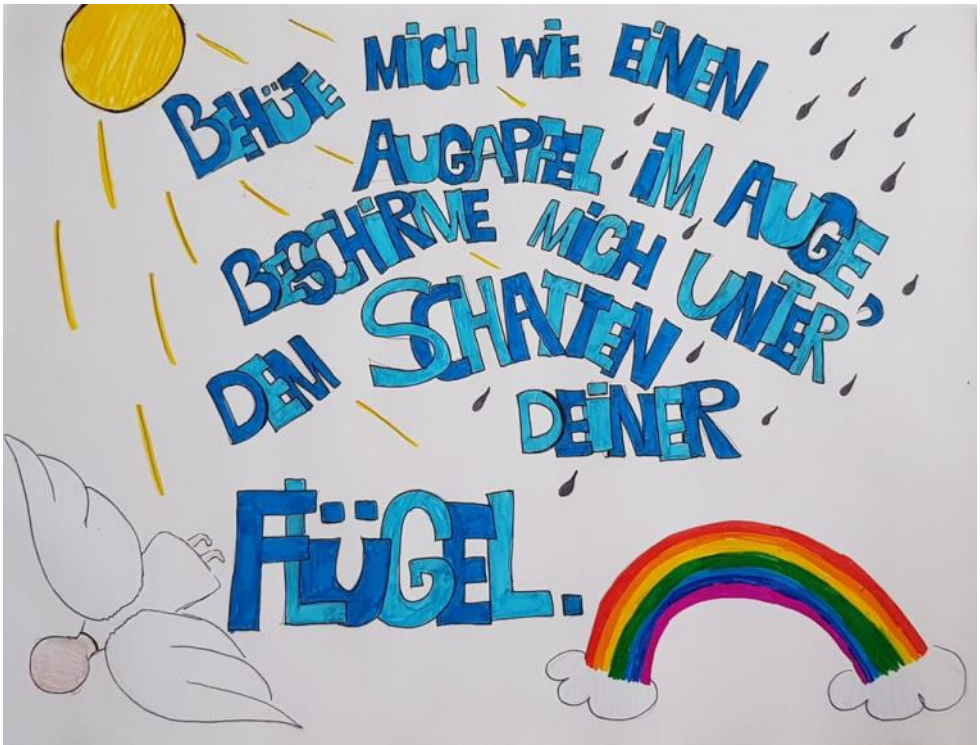 BEHÜTE MiCH WiE EiNEN
AUGAPFEL iM AUGE,
BESCHiRME MiCH UNTER
DEM SCHATTEN
DEiNER
FLÜGEL.